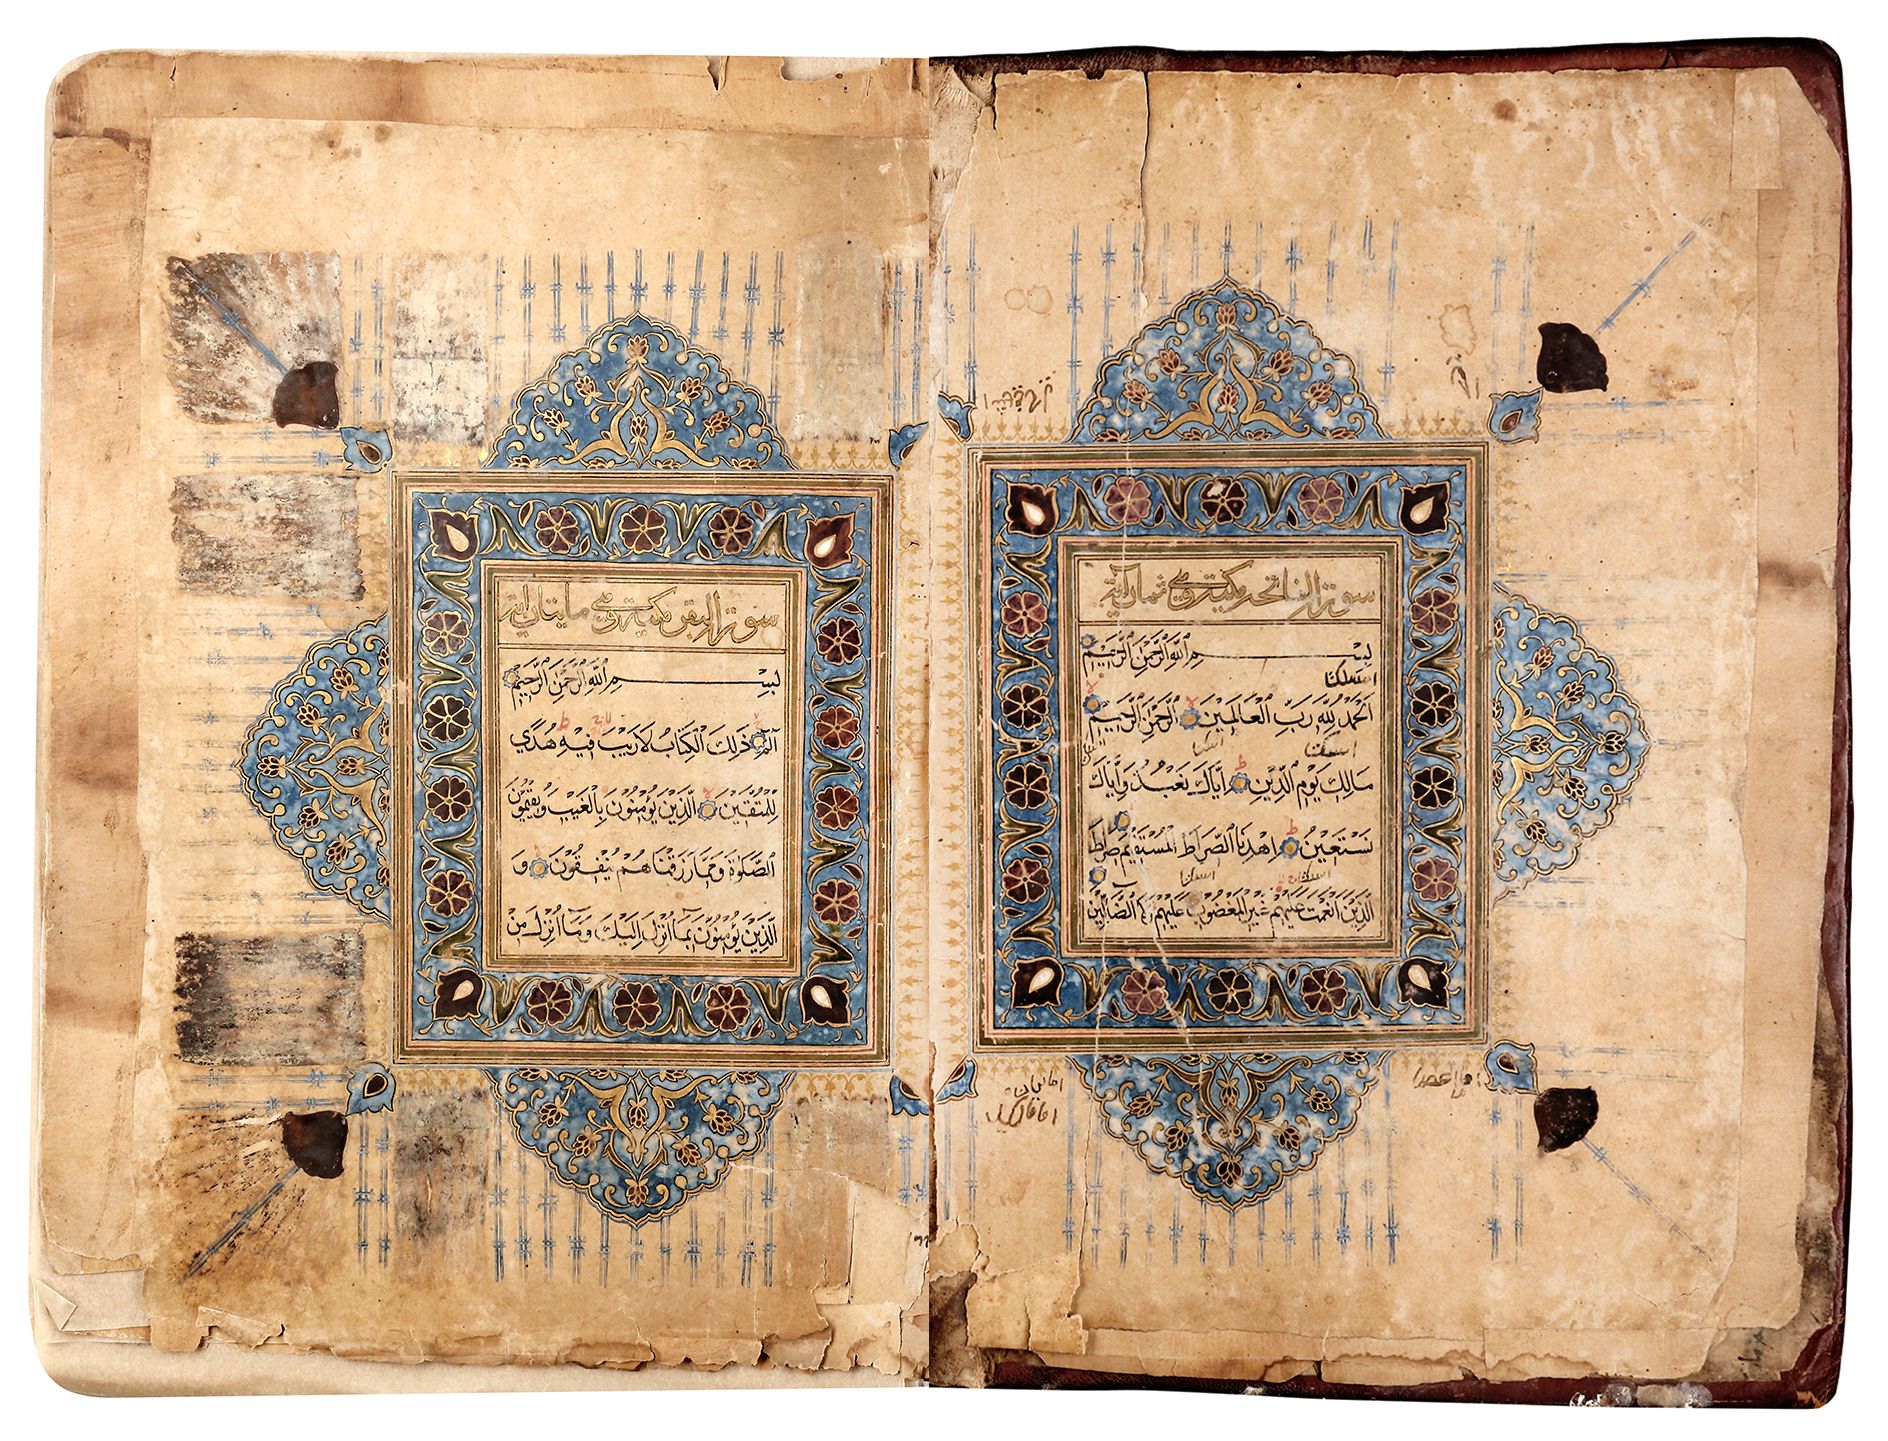 سورة الفاتحة مكية وهي ثمان آية
بِسْمِ اللَّهِ الرَّحْمَٰنِ الرَّحِيمِ
اَلْحَمْدُ لِلَّهِ رَبِّ الْعَالَمِينَ الرَّحْمَٰنِ الرَّحِيمِ
مَالِكِ يَوْمِ الدِّينِ اِيَّاكَ نَعْبُدُ وَاِيَّاكَ
نَسْتَعِينُ اِهْدِنَا الصِّرَاطَ الْمُسْتَقِيمَ صِرَاطَ
الَّذِينَ اَنْعَمْتَ عَلَيْهِمْ غَيْرِ الْمَغْضُوبِ عَلَيْهِمْ وَلَا الضَّالِّينَ
سورة البقرة مكية وهي مايتان آية
بِسْمِ اللَّهِ الرَّحْمَٰنِ الرَّحِيمِ
الم ذَلِكَ الْكِتَابُ لَا رَيْبَ فِيهِ هُدًى
لِلْمُتَّقِينَ اَلَّذِينَ يُؤْمِنُونَ بِالْغَيْبِ وَيُقِيمُونَ
الصَّلٰوةَ وَمِمَّا رَزَقْنَاهُمْ يُنْفِقُونَ وَ
الَّذِينَ يُؤْمِنُونَ بِمَا اُنْزِلَ اِلَيْكَ وَمَا اُنْزِلَ مِنْ